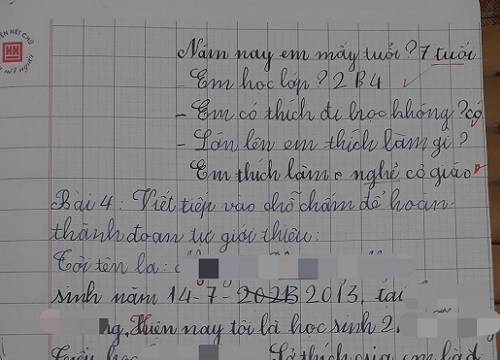 Năm nay em mấy tuổi? 7 tuổi
- Em học lớp? 2 B4
- Em có thích đi học không? có
- Lớn lên em thích làm gì?
Em thích làm nghề cô giáo
Bài 4: Viết tiếp vào chỗ chấm để hoàn
thành đoạn tự giới thiệu:
Tôi tên là:
sinh năm 14-7-2013, tại
Hiện nay tôi là học sinh 2.
Sở thích của em là đ